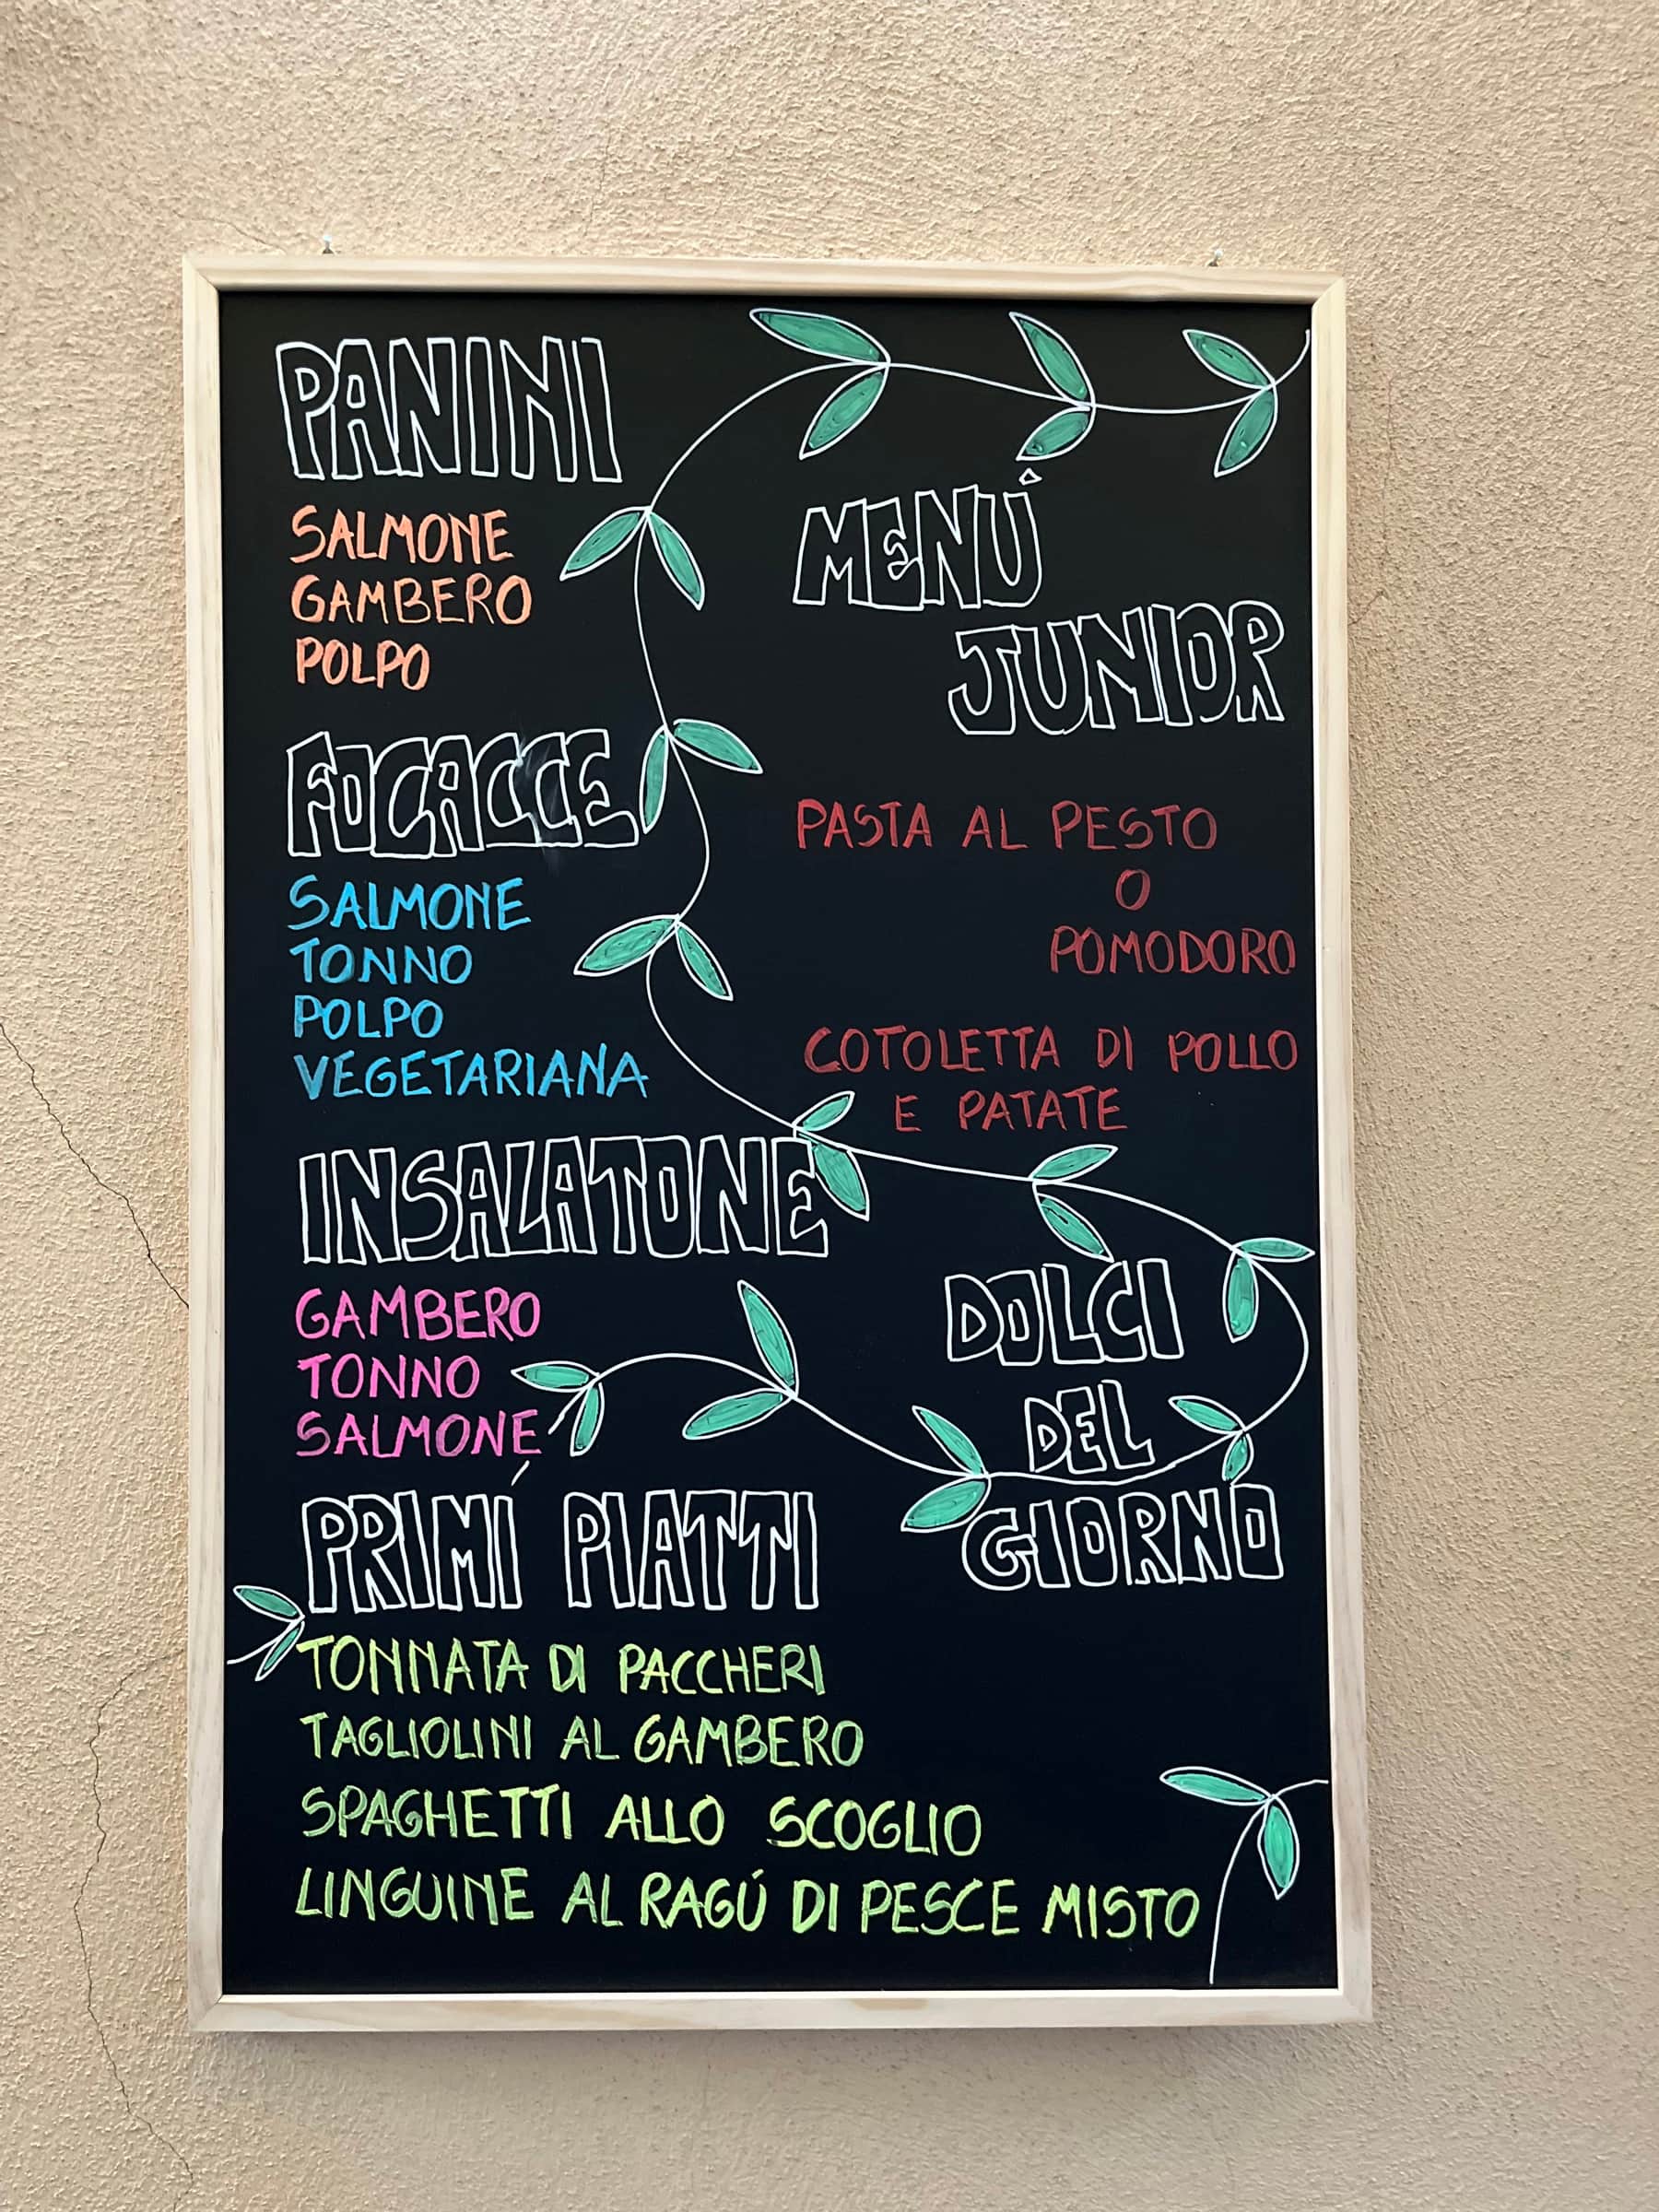 PANINI
SALMONE
GAMBERO
POLPO
FOCACCE
SALMONE
TONNO
POLPO
VEGETARIANA
INSALATONE
GAMBERO
TONNO
SALMONE
PRIMÍ PIATTI
TONNATA DI PACCHERI
TAGLIOLINI AL GAMBERO
SPAGHETTI ALLO SCOGLIO
LINGUINE AL RAGÚ DI PESCE MISTO
MENÙ
JUNIOR
PASTA AL PESTO
O
POMODORO
COTOLETTA DI POLLO
E PATATE
DOLCI
DEL
GIORNO